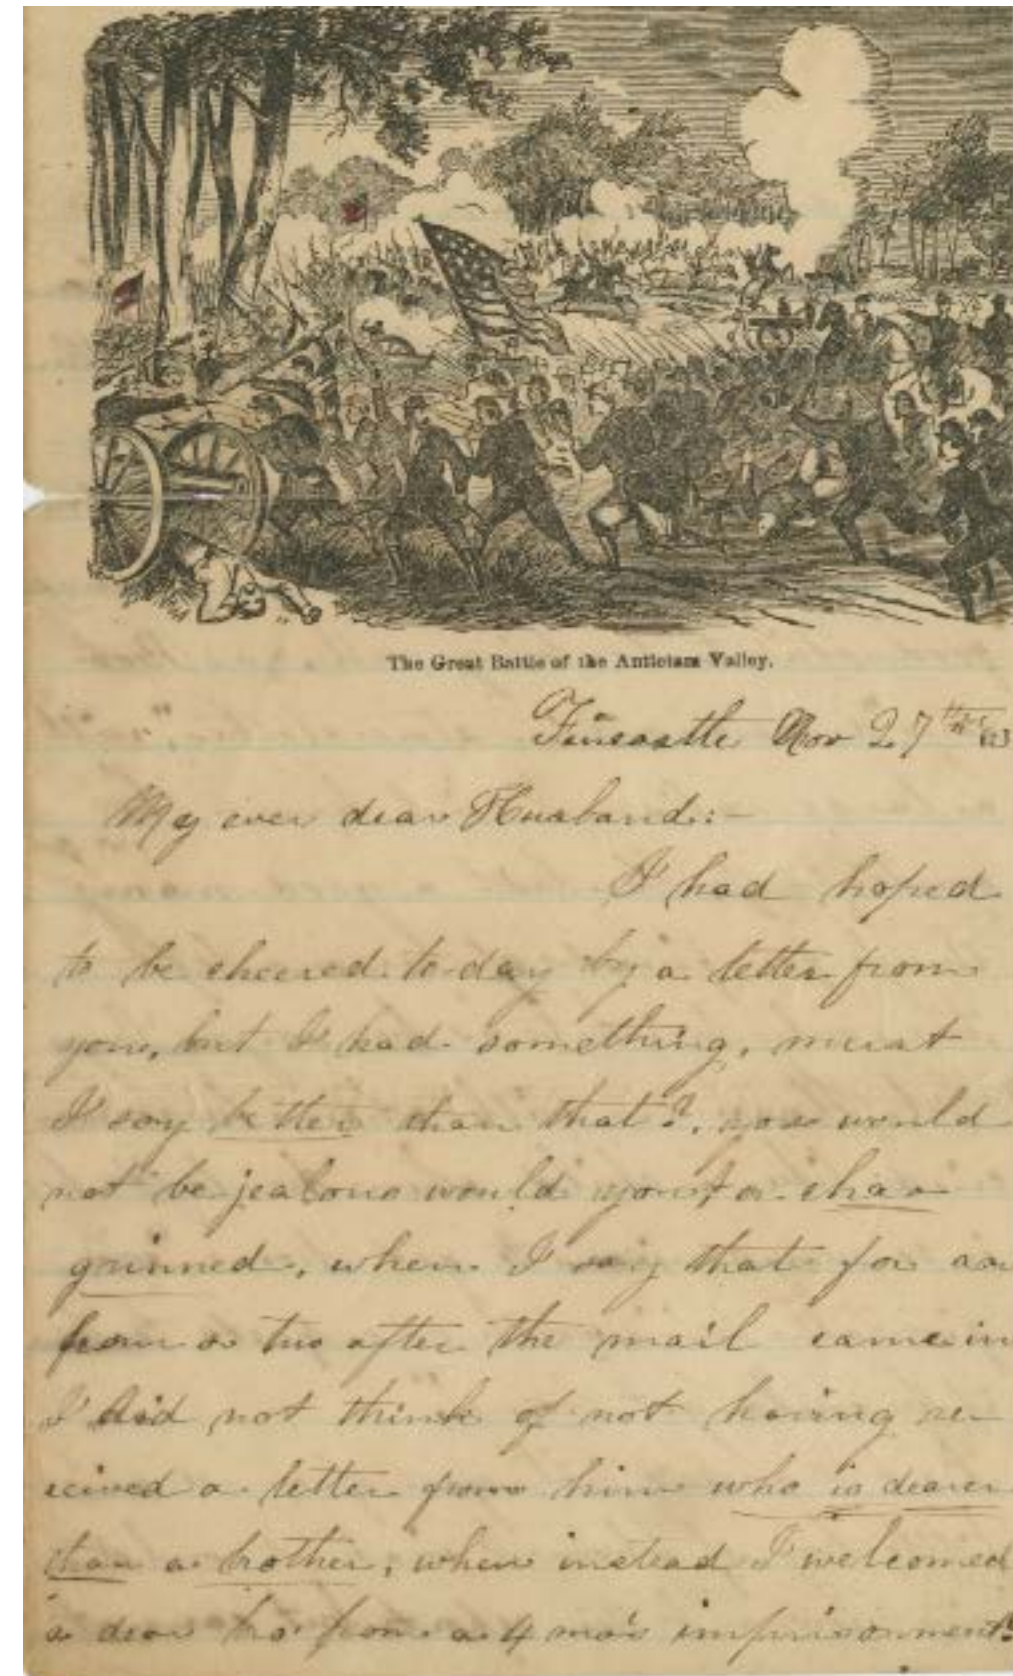 The Great Battle of the Antietam Valley.
Fincastle Nov 27th
My ever dear Husband:-
I had hoped
to be cheered to-day by a letter from
you, but I had something, must
I say better than that?, you would
not be jealous would you, or cha-
grinned, when I say that for an
hour or two after the mail came in
I did not think of not having re-
ceived a letter from him who is dearer
than a brother, when instead I welcomed
a dear bro from a 4 mo's imprisonment.